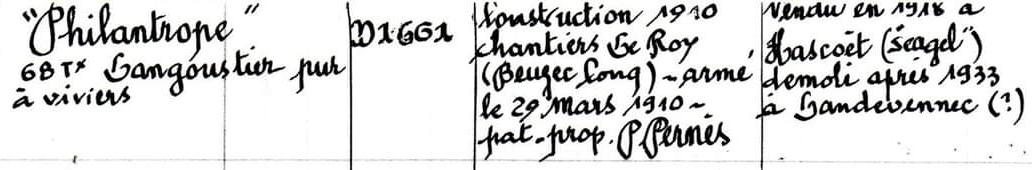 "Philantrope"
68 Tx Langoustier pur
à viviers
D1661
Construction 1910
chantiers Le Roy
(Beuzec Conq) - armé
le 29 Mars 1910 -
pat-prop. P Pernès
Vendu en 1918 à
Hascoët (Seagel")
demoli après 1933
à Landevennec (?)